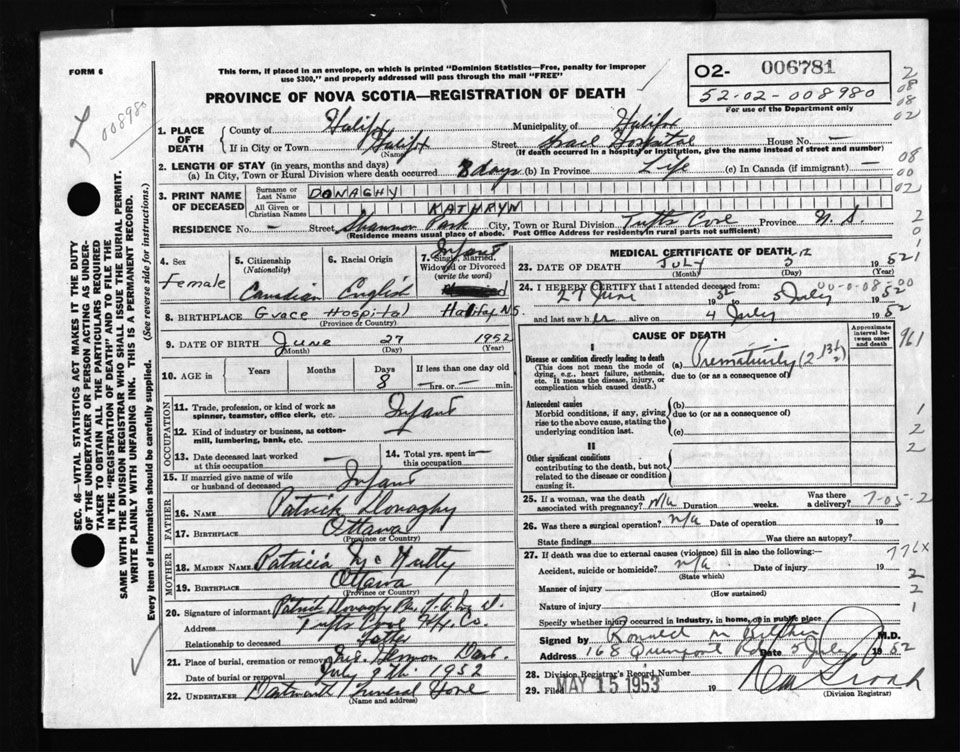 FORM 6
This form, if placed in an envelope, on which is printed "Dominion Statistics—Free, penalty for improper
use $300," and properly addressed will pass through the mail "FREE"
02- 006781
52-02-008980
For use of the Department only
PROVINCE OF NOVA SCOTIA—REGISTRATION OF DEATH
008980
1. PLACE OF DEATH
County of Halifax Municipality of Halifax
If in City or Town Halifax Street Grace Hospital House No. —
(Name) (If death occurred in a hospital or institution, give the name instead of street and number)
2. LENGTH OF STAY (in years, months and days)
(a) In City, Town or Rural Division where death occurred 8 days (b) In Province Life (c) In Canada (if immigrant) —
3. PRINT NAME OF DECEASED
Surname or Last Name DONAGHY
All Given or Christian Names KATHRYN
RESIDENCE No. — Street Shannon Park City, Town or Rural Division Tufts Cove Province N.S.
(Residence means usual place of abode. Post Office Address for residents in rural parts not sufficient)
4. Sex Female
5. Citizenship (Nationality) Canadian
6. Racial Origin English
7. Single, Married, Widowed or Divorced (write the word) Infant
8. BIRTHPLACE Grace Hospital Halifax N.S.
(Province or Country)
9. DATE OF BIRTH June 27 1952
(Month) (Day) (Year)
10. AGE Years Months Days 8 If less than one day old — hrs. or — min.
OCCUPATION
11. Trade, profession, or kind of work as spinner, teamster, office clerk, etc. Infant
12. Kind of industry or business, as cotton-mill, lumbering, bank, etc.
13. Date deceased last worked at this occupation —
14. Total yrs. spent in this occupation —
15. If married give name of wife or husband of deceased Infant
FATHER
16. NAME Patrick Donaghy
17. BIRTHPLACE Ottawa
(Province or Country)
MOTHER
18. MAIDEN NAME Patricia McNulty
19. BIRTHPLACE Ottawa
(Province or Country)
20. Signature of informant Patrick Donaghy
Address Tufts Cove Hfx. Co.
Relationship to deceased Father
21. Place of burial, cremation or removal Mt. Hermon Dart.
Date of burial or removal July 9th 1952
22. UNDERTAKER Dartmouth Funeral Home
(Name and address)
MEDICAL CERTIFICATE OF DEATH
23. DATE OF DEATH July 5 1952
(Month) (Day) (Year)
24. I HEREBY CERTIFY that I attended deceased from:
27 June 1952 to 5 July 1952
and last saw her alive on 4 July 1952
00-0-08-00
CAUSE OF DEATH
Approximate interval between onset and death
I
Disease or condition directly leading to death
(This does not mean the mode of dying, e.g., heart failure, asthenia, etc. It means the disease, injury, or complication which caused death.)
(a) Prematurity
due to (or as a consequence of)
Antecedent causes
Morbid conditions, if any, giving rise to the above cause, stating the underlying condition last.
(b)
due to (or as a consequence of)
(c)
II
Other significant conditions
contributing to the death, but not related to the disease or condition causing it.
25. If a woman, was the death associated with pregnancy? N/a Duration weeks. Was there a delivery?
7-05-2
26. Was there a surgical operation? n/a Date of operation 19
State findings Was there an autopsy?
27. If death was due to external causes (violence) fill in also the following:—
Accident, suicide or homicide? n/a Date of injury 19
(State which)
Manner of injury
(How sustained)
Nature of injury
Specify whether injury occurred in industry, in home, or in public place
Signed by M.D.
Address 168 Date 5 July 1952
28. Division Registrar's Record Number
29. Filed MAY 15 1953 19
(Division Registrar)
961
776X
SEC. 46—VITAL STATISTICS ACT MAKES IT THE DUTY
OF THE UNDERTAKER OR PERSON ACTING AS UNDER-
TAKER TO OBTAIN ALL THE PARTICULARS REQUIRED
IN THE "REGISTRATION OF DEATH" AND TO FILE THE
SAME WITH THE DIVISION REGISTRAR WHO SHALL ISSUE THE BURIAL PERMIT.
WRITE PLAINLY WITH UNFADING INK. THIS IS A PERMANENT RECORD.
Every item of information should be carefully supplied. (See reverse side for instructions.)